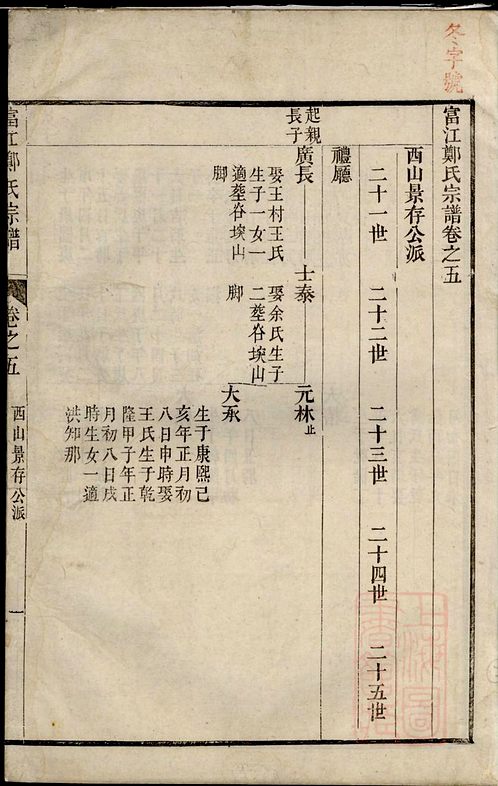 冬字號
富江鄭氏宗譜卷之五
西山景存公派
二十一世
二十二世
二十三世
二十四世
二十五世
禮廳
起親
長子
廣長
士泰
元林止
娶王村王氏
生子一女一
適塟吞塽山
脚
娶余氏生子
二塟吞塽山
脚
大永
生于康熙己
亥年正月初
八日申時娶
王氏生于乾
隆甲子年正
月初八日戌
時生女一適
洪知那
富江鄭氏宗譜
卷之五
西山景存公派
一
上海圖
書館藏